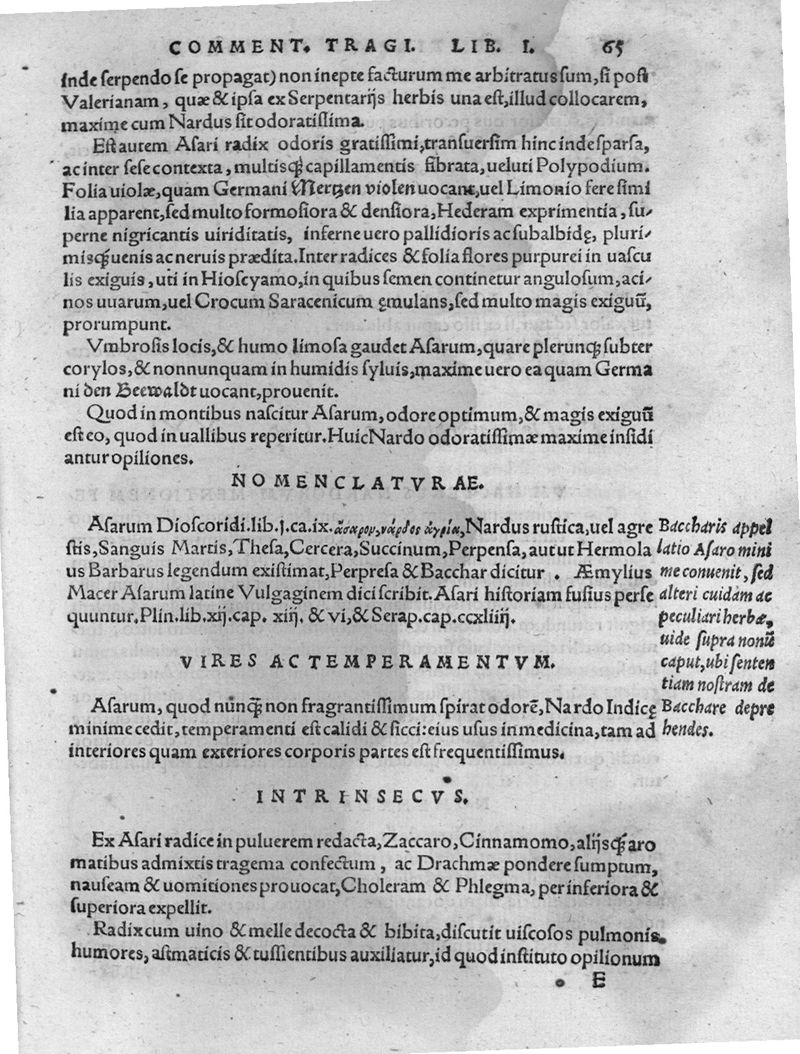 COMMENT. TRAGI. LIB. I. 65
inde serpendo se propagat) non inepte facturum me arbitratus sum, si post
Valerianam, quæ & ipsa ex Serpentarijs herbis una est, illud collocarem,
maxime cum Nardus sit odoratissima.
Est autem Asari radix odoris gratissimi, transuersim hinc inde sparsa,
ac inter sese contexta, multisq́; capillamentis fibrata, ueluti Polypodium.
Folia uiolæ, quam Germani Mertzen violen uocant, uel Limonio fere simi
lia apparent, sed multo formosiora & densiora, Hederam exprimentia, su-
perne nigricantis uiriditatis, inferne uero pallidioris ac subalbidę, pluri-
misq́; uenis ac neruis prædita. Inter radices & folia flores purpurei in uascu
lis exiguis, uti in Hioscyamo, in quibus semen continetur angulosum, aci-
nos uuarum, uel Crocum Saracenicum ęmulans, sed multo magis exiguũ,
prorumpunt.
Vmbrosis locis, & humo limosa gaudet Asarum, quare plerunq; subter
corylos, & nonnunquam in humidis syluis, maxime uero ea quam Germa
ni den Beewaldt uocant, prouenit.
Quod in montibus nascitur Asarum, odore optimum, & magis exiguũ
est eo, quod in uallibus reperitur. Huic Nardo odoratissimæ maxime insidi
antur opiliones.
NOMENCLATVRAE.
Asarum Dioscoridi. lib. j. ca. ix. ἄσαρον, νάρδος ἀγρία, Nardus rustica, uel agre
stis, Sanguis Martis, Thesa, Cercera, Succinum, Perpensa, aut ut Hermola
us Barbarus legendum existimat, Perpresa & Bacchar dicitur. Æmylius
Macer Asarum latine Vulgaginem dici scribit. Asari historiam fusius perse
quuntur. Plin. lib. xij. cap. xiij. & vi, & Serap. cap. ccxliiij.
Baccharis appel
latio Asaro mini
me conuenit, sed
alteri cuidam ac
peculiari herbæ,
uide supra nonũ
caput, ubi senten
tiam nostram de
Bacchare depre
hendes.
VIRES AC TEMPERAMENTVM.
Asarum, quod nunq́; non fragrantissimum spirat odorẽ, Nardo Indicę
minime cedit, temperamenti est calidi & sicci: eius usus in medicina, tam ad
interiores quam exteriores corporis partes est frequentissimus.
INTRINSECVS.
Ex Asari radice in puluerem redacta, Zaccaro, Cinnamomo, alijsq́; aro
matibus admixtis tragema confectum, ac Drachmæ pondere sumptum,
nauseam & uomitiones prouocat, Choleram & Phlegma, per inferiora &
superiora expellit.
Radix cum uino & melle decocta & bibita, discutit uiscosos pulmonis
humores, astmaticis & tussientibus auxiliatur, id quod instituto opilionum
E